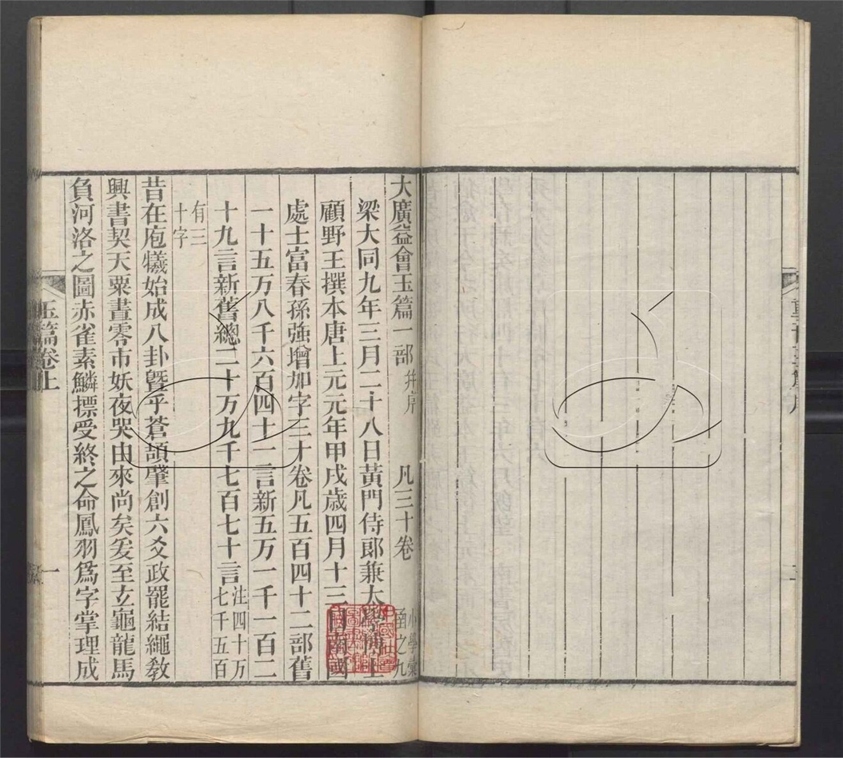 大廣益會玉篇一部 并序 凡三十卷
梁大同九年三月二十八日黃門侍郎兼太學博士
顧野王撰本唐上元元年甲戌歲四月十三日南國
處士富春孫強增加字三十卷凡五百四十二部舊
一十五万八千六百四十一言新五万一千一百二
十九言新舊總二十万九千七百七十言 注四十万七千五百
有三十字
昔在庖犧始成八卦暨乎蒼頡肇創六爻政罷結繩教
興書契天粟晝零市妖夜哭由來尚矣爰至玄龜龍馬
負河洛之圖赤雀素鱗標受終之命鳳羽爲字掌理成
玉篇卷上
一